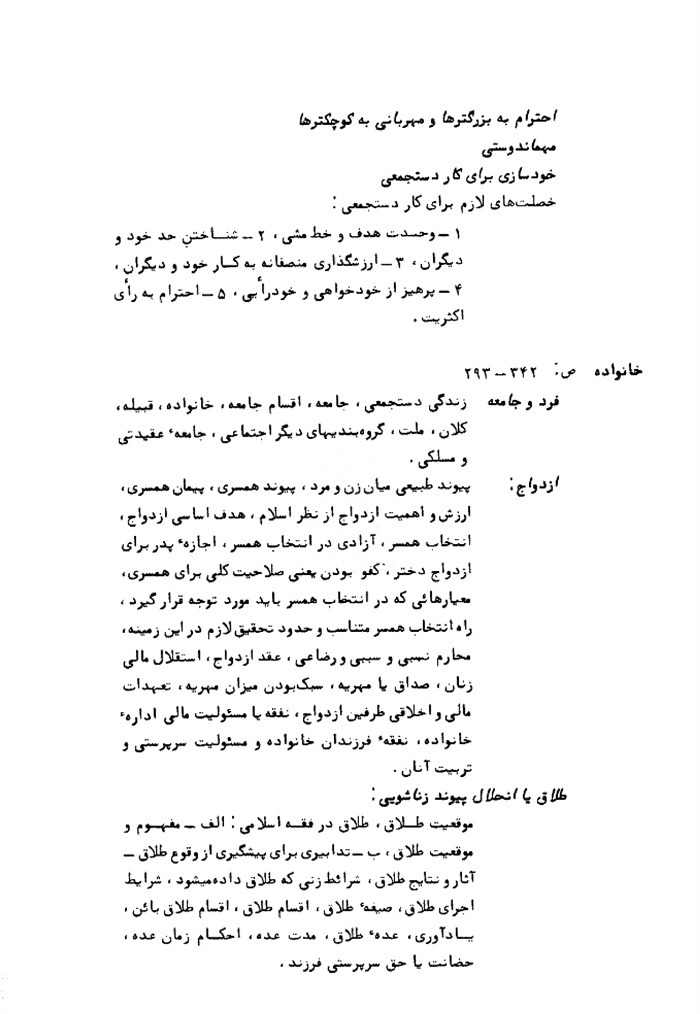 احترام به بزرگترها و مهربانی به کوچکترها
مهماندوستی
خودسازی برای کار دستجمعی
خصلت‌های لازم برای کار دستجمعی :
۱ – وحدت هدف و خط مشی ، ۲ – شناختن حد خود و
دیگران ، ۳ – ارزشگذاری منصفانه به کار خود و دیگران ،
۴ – پرهیز از خودخواهی و خودرأیی ، ۵ – احترام به رأی
اکثریت .
خانواده ص : ۳۴۲ – ۲۹۳
فرد و جامعه زندگی دستجمعی ، جامعه ، اقسام جامعه ، خانواده ، قبیله ،
کلان ، ملت ، گروه‌بندیهای دیگر اجتماعی ، جامعهٔ عقیدتی
و مسلکی .
ازدواج : پیوند طبیعی میان زن و مرد ، پیوند همسری ، پیمان همسری ،
ارزش و اهمیت ازدواج از نظر اسلام ، هدف اساسی ازدواج ،
انتخاب همسر ، آزادی در انتخاب همسر ، اجازهٔ پدر برای
ازدواج دختر ، کفو بودن یعنی صلاحیت کلی برای همسری ،
معیارهائی که در انتخاب همسر باید مورد توجه قرار گیرد ،
راه انتخاب همسر متناسب و حدود تحقیق لازم در این زمینه ،
محارم نسبی و سببی و رضاعی ، عقد ازدواج ، استقلال مالی
زنان ، صداق یا مهریه ، سبک‌بودن میزان مهریه ، تعهدات
مالی و اخلاقی طرفین ازدواج ، نفقه یا مسئولیت مالی ادارهٔ
خانواده ، نفقهٔ فرزندان خانواده و مسئولیت سرپرستی و
تربیت آنان .
طلاق یا انحلال پیوند زناشویی :
موقعیت طلاق ، طلاق در فقه اسلامی : الف – مفهوم و
موقعیت طلاق ، ب – تدابیری برای پیشگیری از وقوع طلاق –
آثار و نتایج طلاق ، شرائط زنی که طلاق داده‌میشود ، شرایط
اجرای طلاق ، صیغهٔ طلاق ، اقسام طلاق ، اقسام طلاق بائن ،
یادآوری ، عدهٔ طلاق ، مدت عده ، احکام زمان عده ،
حضانت یا حق سرپرستی فرزند .